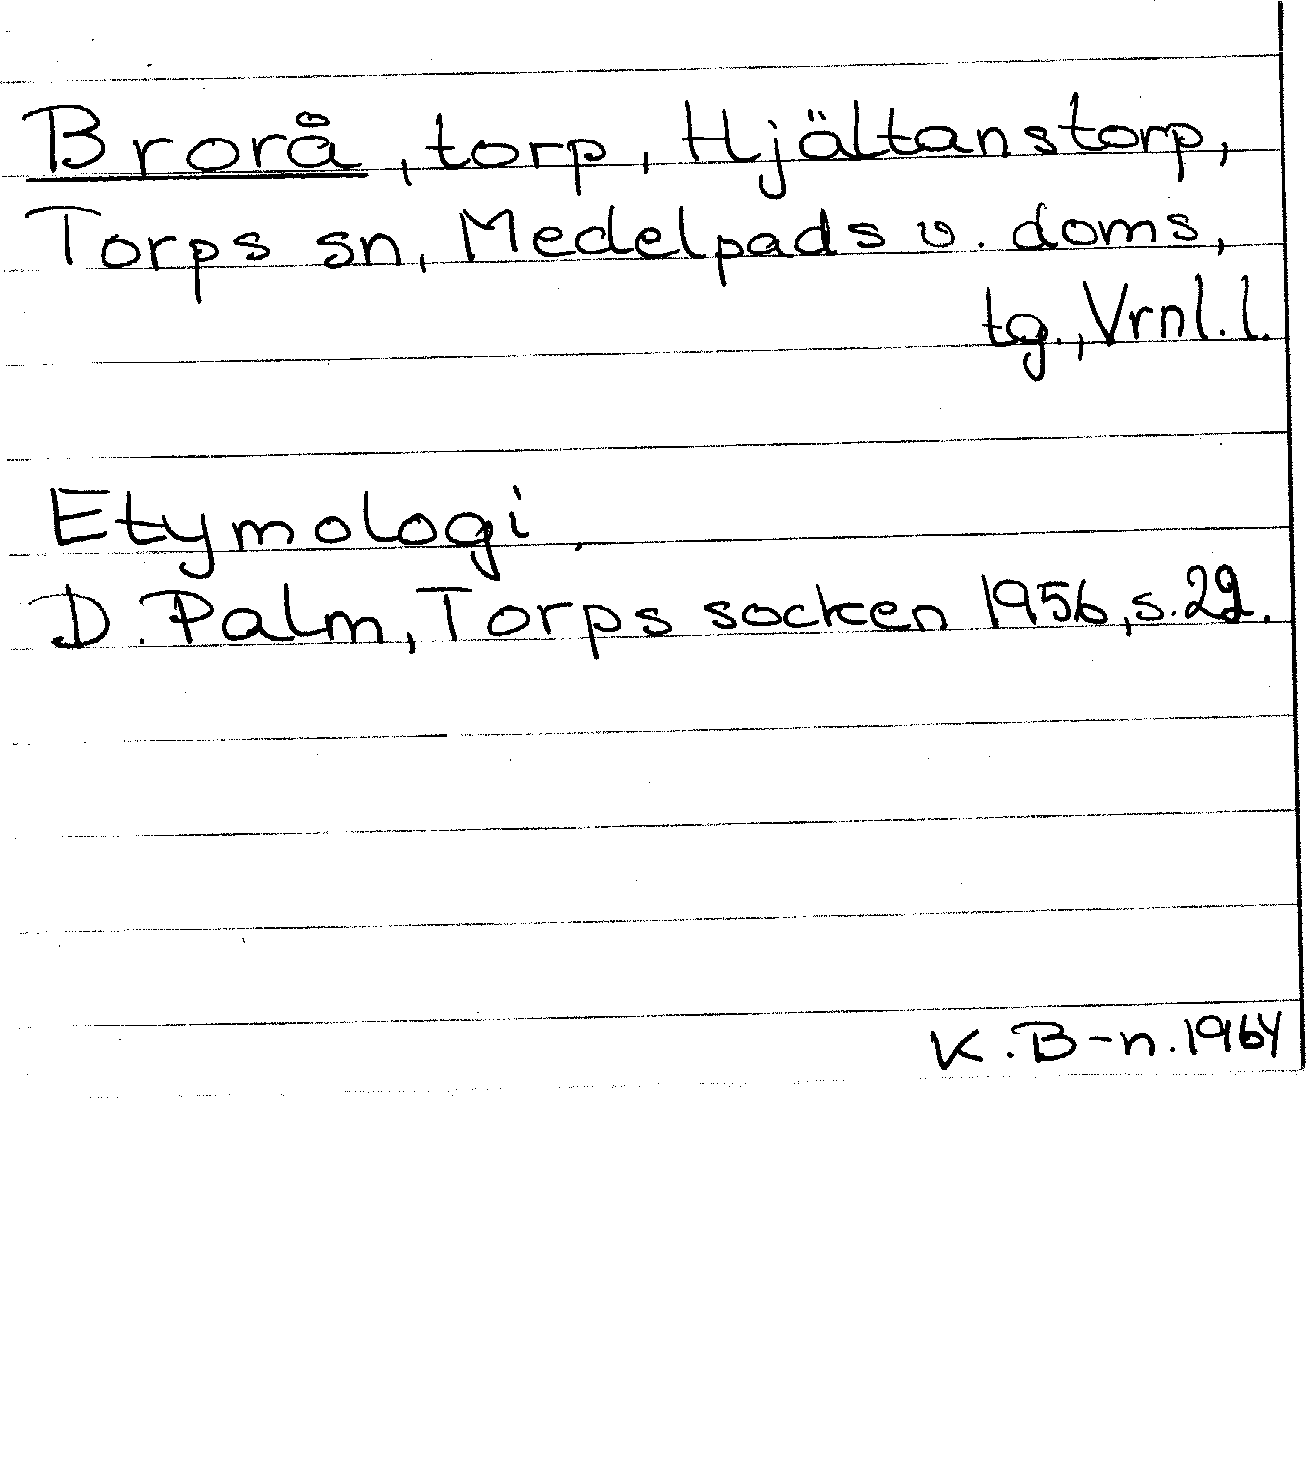 Brorå, torp, Hjältanstorp,
Torps sn, Medelpads v. doms,
tg., Vrnl. l.
Etymologi.
D. Palm, Torps socken 1956, s. 29.
K. B-n. 1964